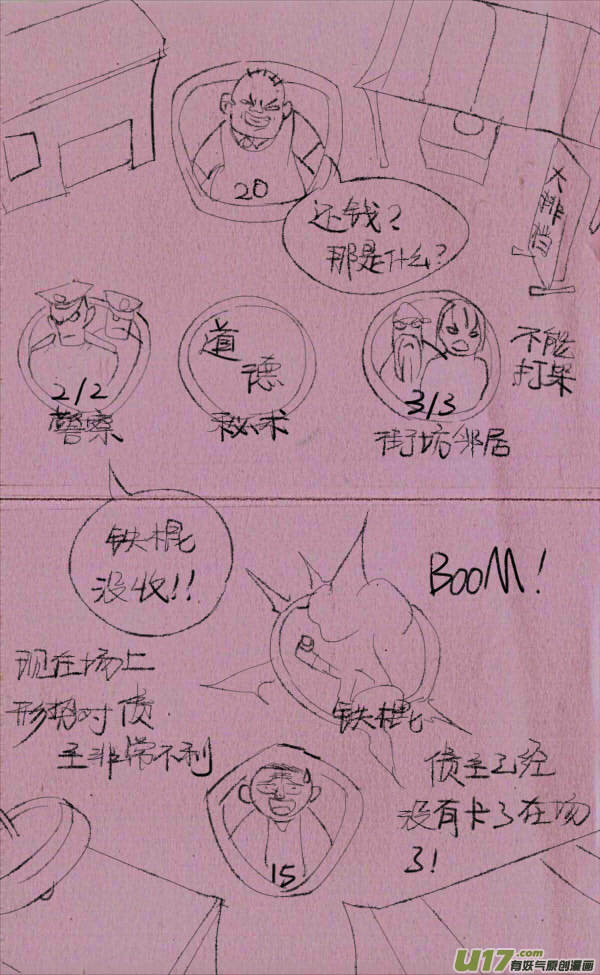 20
还钱?
那是什么?
大排档
2/2
警察
道
德
秘术
3/3
街坊邻居
不能
打架
铁棍
没收!!
BOOM!
铁棍
现在场上
形势对债
主非常不利
15
债主已经
没有卡了在场
了!
U17.com
有妖气原创漫画